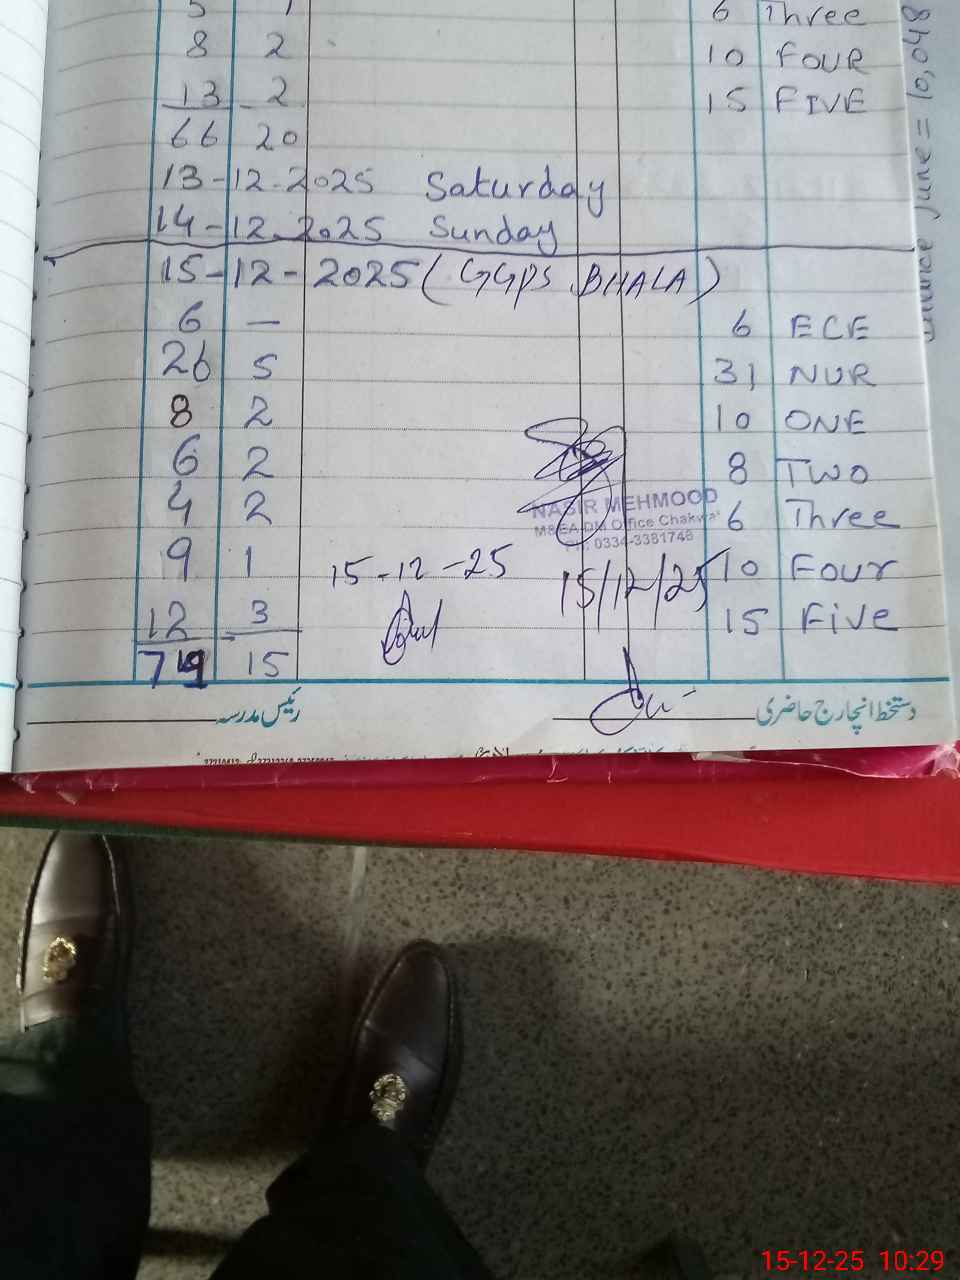 5 1 6 Three
8 2 10 FOUR
13 2 15 FIVE
66 20
13-12-2025 Saturday
14-12-2025 Sunday
15-12-2025 (GGPS BHALA)
6 — 6 ECE
26 5 31 NUR
8 2 10 ONE
6 2 8 TWO
4 2 6 Three
9 1 10 Four
12 3 15 Five
15
NASIR MEHMOOD
M&EA DM Office Chakwal
PH: 0334-3381748
15-12-25
15/12/25
دستخط انچارج حاضری
رئیس مدرسہ
June = 10,048
15-12-25 10:29